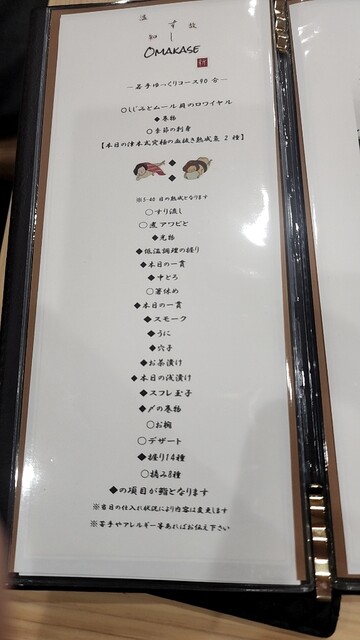 温故知新
すし
OMAKASE
ー若手ゆっくりコース90分ー
○しじみとムール貝のロワイヤル
◆巻物
○季節の刺身
【本日の津本式究極の血抜き熟成魚 2種】
◆
◆
※3-40日の熟成となります
○すり流し
○煮アワビと
◆光物
◆低温調理の握り
◆本日の一貫
◆中とろ
○箸休め
◆本日の一貫
◆スモーク
◆うに
◆穴子
◆お茶漬け
◆本日の浅漬け
◆スフレ玉子
◆〆の巻物
○お椀
○デザート
◆握り14種
○摘み8種
◆の項目が鮨となります
※当日の仕入れ状況により内容は変更します
※苦手やアレルギー等あればお伝え下さい